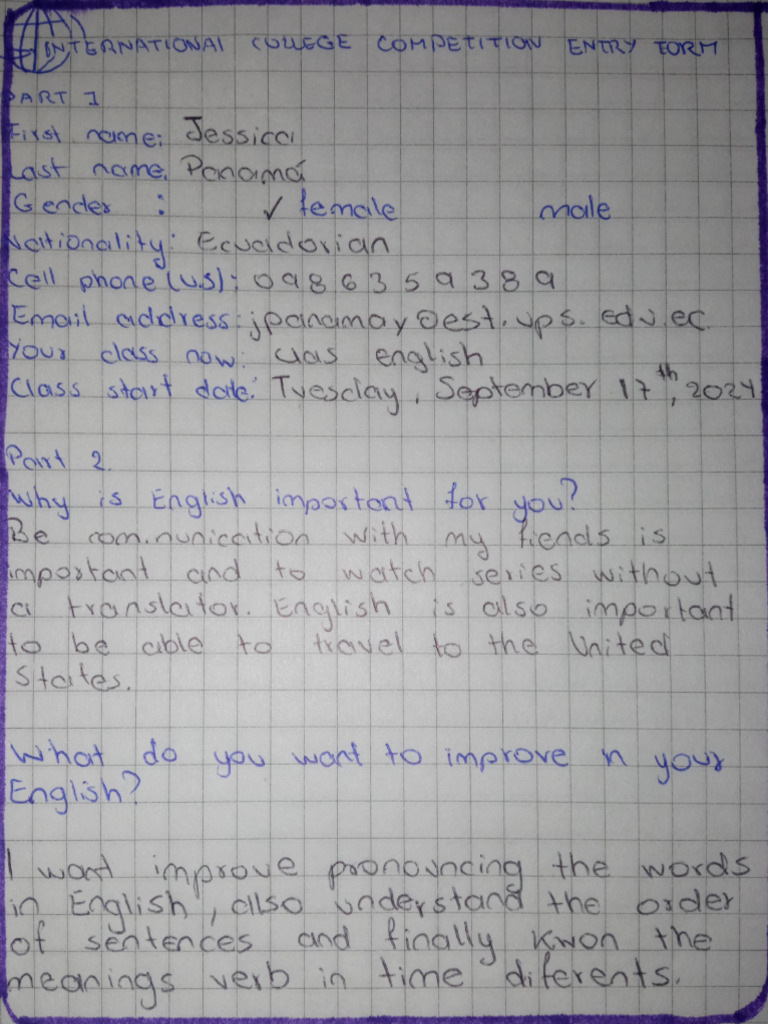 INTERNATIONAL COLLEGE COMPETITION ENTRY FORM
PART 1
First name: Jessica
Last name. Panamá
Gender : ✓ female male
Nationality: Ecuadorian
Cell phone (U.S): 0986359389
Email address: jpanamay@est.ups.edu.ec
Your class now: english
Class start date: Tuesday, September 17th, 2024
Part 2.
Why is English important for you?
Be communication with my fiends is
important and to watch series without
a translator. English is also important
to be able to travel to the United
States.
What do you want to improve in your
English?
I want improve pronouncing the words
in English, also understand the order
of sentences and finally kwon the
meanings verb in time diferents.